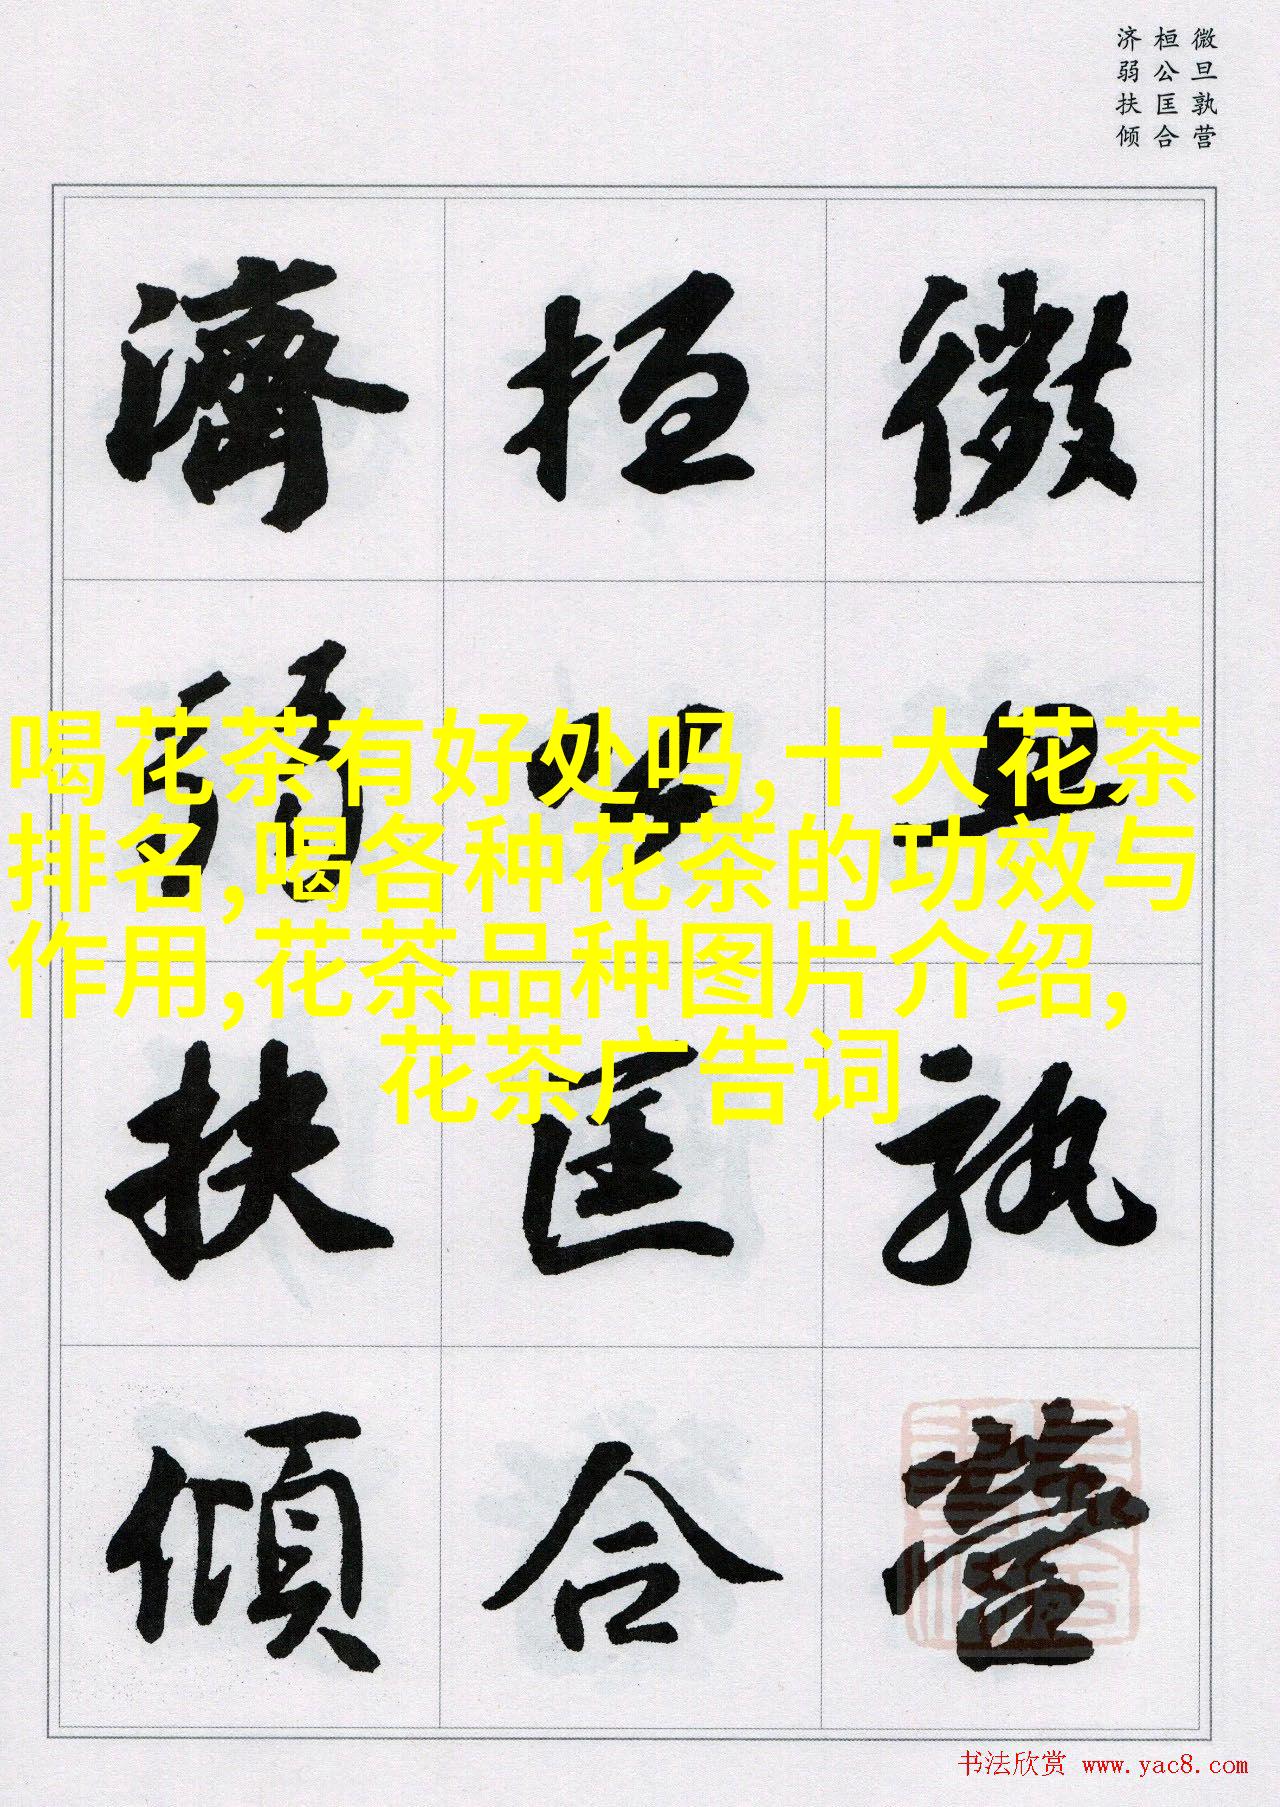 微旦孰营
桓公匡合
济弱扶倾
微旦孰營
桓公匡合
濟弱扶傾
喝花茶有好处吗,十大花茶
排名,喝各种花茶的功效与
作用,花茶品种图片介绍,
花茶广告词
书法欣赏 www.yac8.com